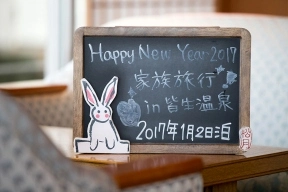 Happy New Year 2017
家族旅行
in 皆生温泉
2017年1月2日泊